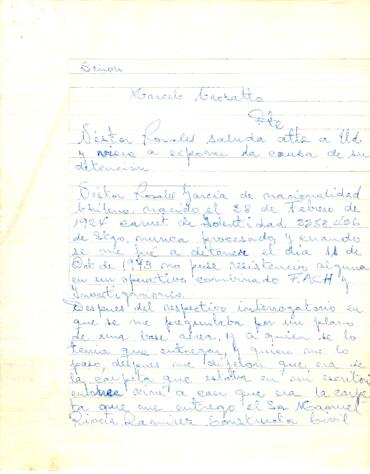 Señor
Marcelo
Pte
Néstor Rosales saluda atte a Ud
y viene a exponer la causa de su
detención
Néstor Rosales García de nacionalidad
Chileno, nacido el 28 de Febrero de
1924 carnet de Identidad 2258.426
de Stgo, nunca procesado y cuando
se me fué a detener el día 11 de
Oct de 1973 no puse resistencia alguna
en un operativo combinado FACH y
Investigaciones.
Despues del respectivo interrogatorio en
que se me preguntaba por un plano
de una base aerea, y a quien se lo
tenia que entregar, y quien me lo
paso, despues me dijeron que era se
la carpeta que estaba en mi escritorio
entonce vine a caer que era la carpe
ta que me entrego el Sr Manuel
Rivera Ramirez Constructor Civil